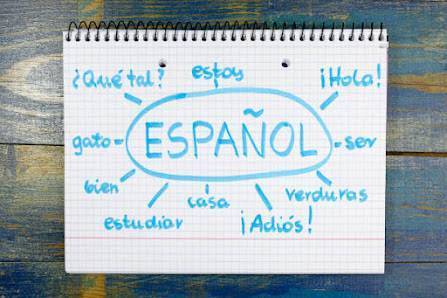 ¿Qué tal? estoy ¡Hola!
gato ESPAÑOL ser
bien casa verduras
estudiar ¡Adiós!